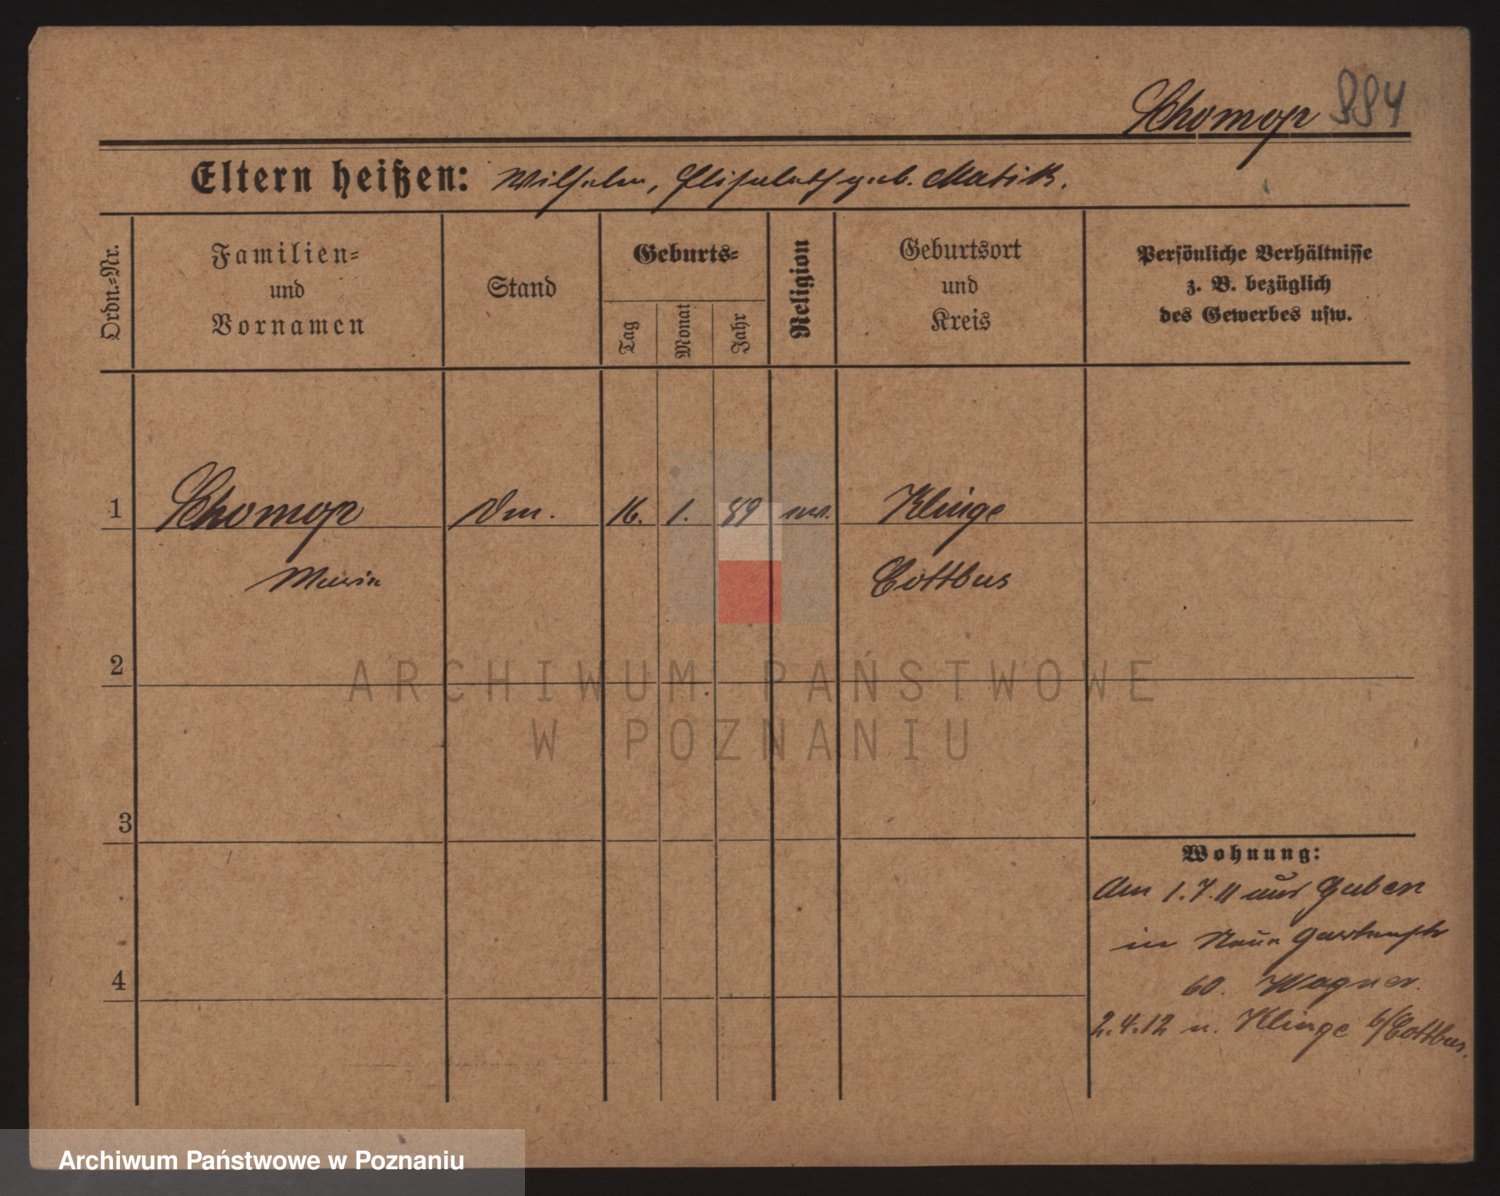 Schomop 884
Eltern heißen: Wilhelm, Elisabeth geb. Matik.
Ordn.-Nr.
Familien-
und
Vornamen
Stand
Geburts-
Tag
Monat
Jahr
Religion
Geburtsort
und
Kreis
Persönliche Verhältnisse
z. B. bezüglich
des Gewerbes usw.
1 Schomop 16. 1. 89 Klinge
Marie Cottbus
2
ARCHIWUM PAŃSTWOWE
W POZNANIU
3
Wohnung:
Am 1.7.11 aus Guben
in Neue Gartenstr
4
60. Wagner.
2.4.12 n. Klinge b/Cottbus.
Archiwum Państwowe w Poznaniu